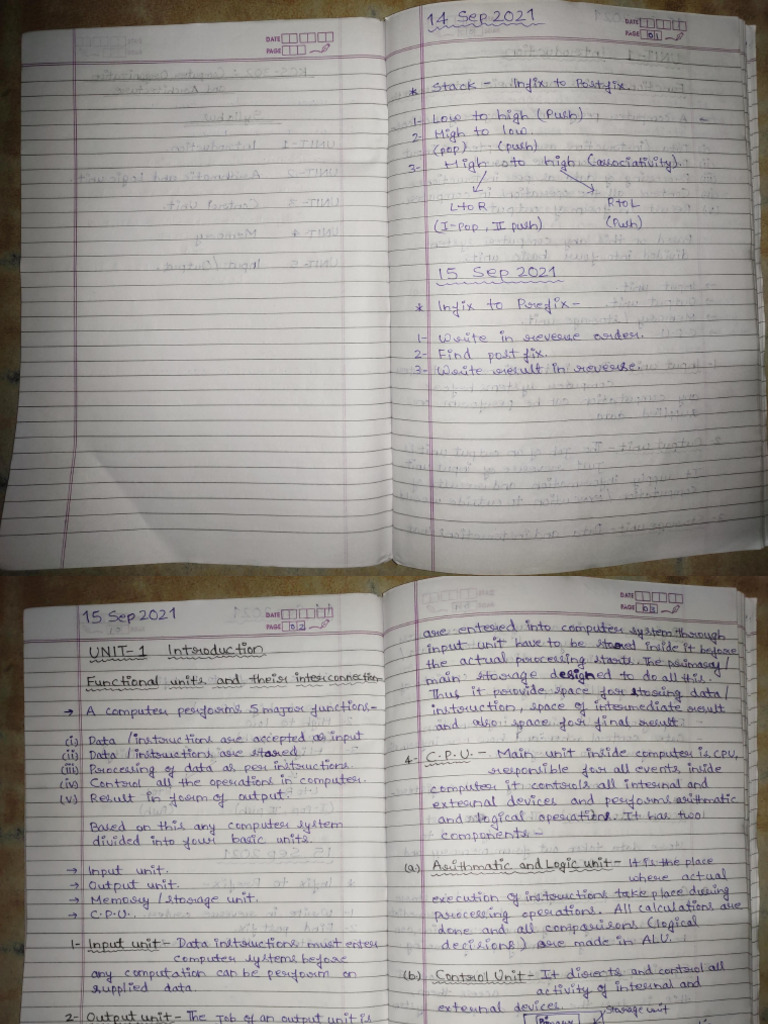 DATE
PAGE
KCS-302: Computer Organization
and Architecture
Syllabus
UNIT-1 Introduction
UNIT-2 Arithmatic and Logic unit
UNIT-3 Control Unit
UNIT-4 Memory
UNIT-5 Input/Output.
14 Sep 2021
DATE
PAGE 01
* Stack - Infix to Postfix.
1- Low to high (Push)
2- High to low.
(pop) (push)
3- High to high (associativity).
L to R R to L
(I-Pop, II push) (Push)
15 Sep 2021
* Infix to Prefix-
1- Write in reverse order.
2- Find postfix.
3- Write result in reverse.
15 Sep 2021
DATE
PAGE 02
UNIT-1 Introduction
Functional units and their interconnection
→ A computer performs 5 major functions-
(i) Data / instructions are accepted as input
(ii) Data / instructions are stored
(iii) Processing of data as per instructions.
(iv) Control all the operations in computer.
(v) Result in form of output.
Based on this any computer system
divided into four basic units.
→ Input unit.
→ Output unit.
→ Memory / storage unit.
→ C.P.U.
1- Input unit - Data instructions must enter
computer systems before
any computation can be perform on
supplied data.
2- Output unit - The job of an output unit is
DATE
PAGE
are entered into computer system through
input unit have to be stored inside it before
the actual processing starts. The primary /
main storage designed to do all this.
Thus it provide space for storing data /
instruction, space of intermediate result
and also space for final result
4- C.P.U. - Main unit inside computer is CPU,
responsible for all events inside
computer it controls all internal and
external devices and performs arithmatic
and logical operations. It has two
components-
(a) Arithmatic and Logic unit - It is the place
where actual
execution of instructions take place during
processing operations. All calculations are
done and all comparisons (logical
decisions) are made in ALU.
(b) Control Unit - It directs and control all
activity of internal and
external devices. Storage unit
Primary